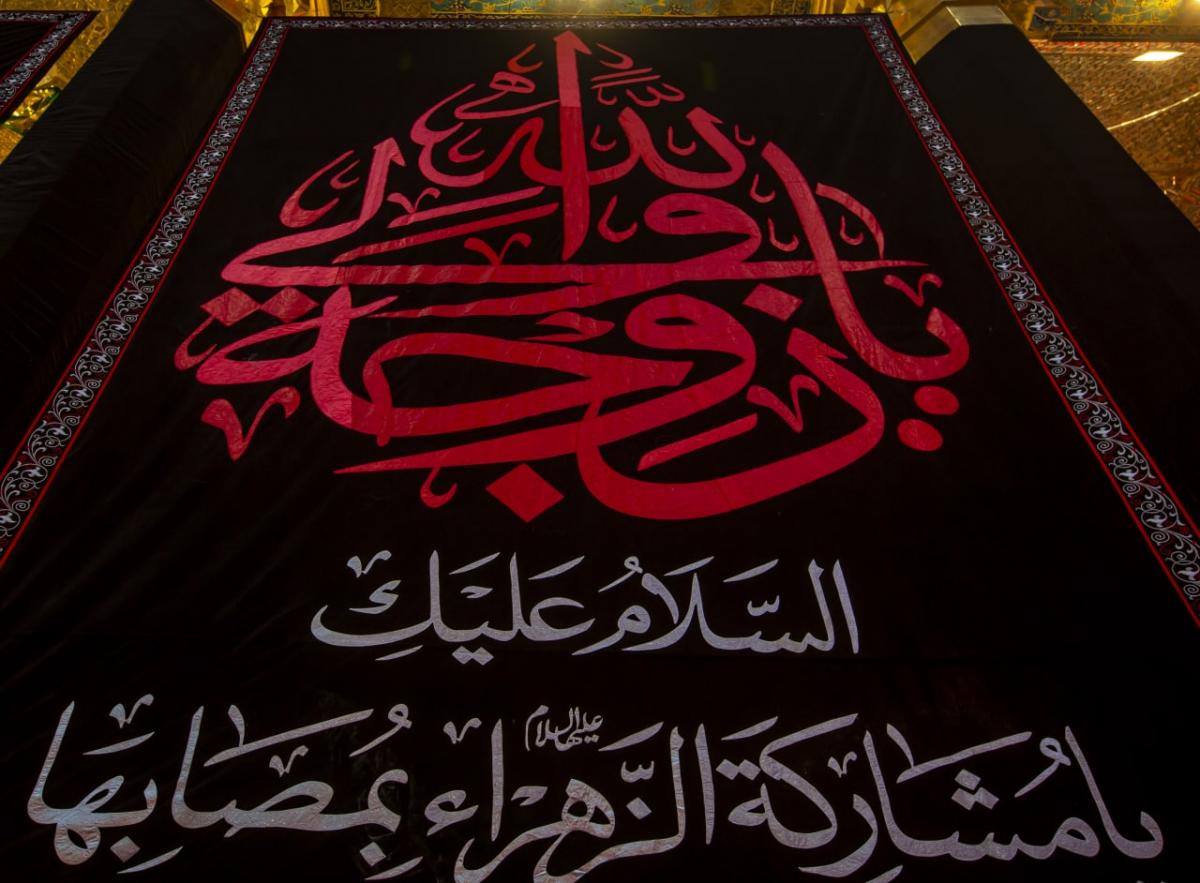 يا زوجة ولي الله
السَّلَامُ عَلَيْكِ
يا مُشَارِكَةَ الزَّهْرَاءِ عليها السلام بِمُصَابِهَا